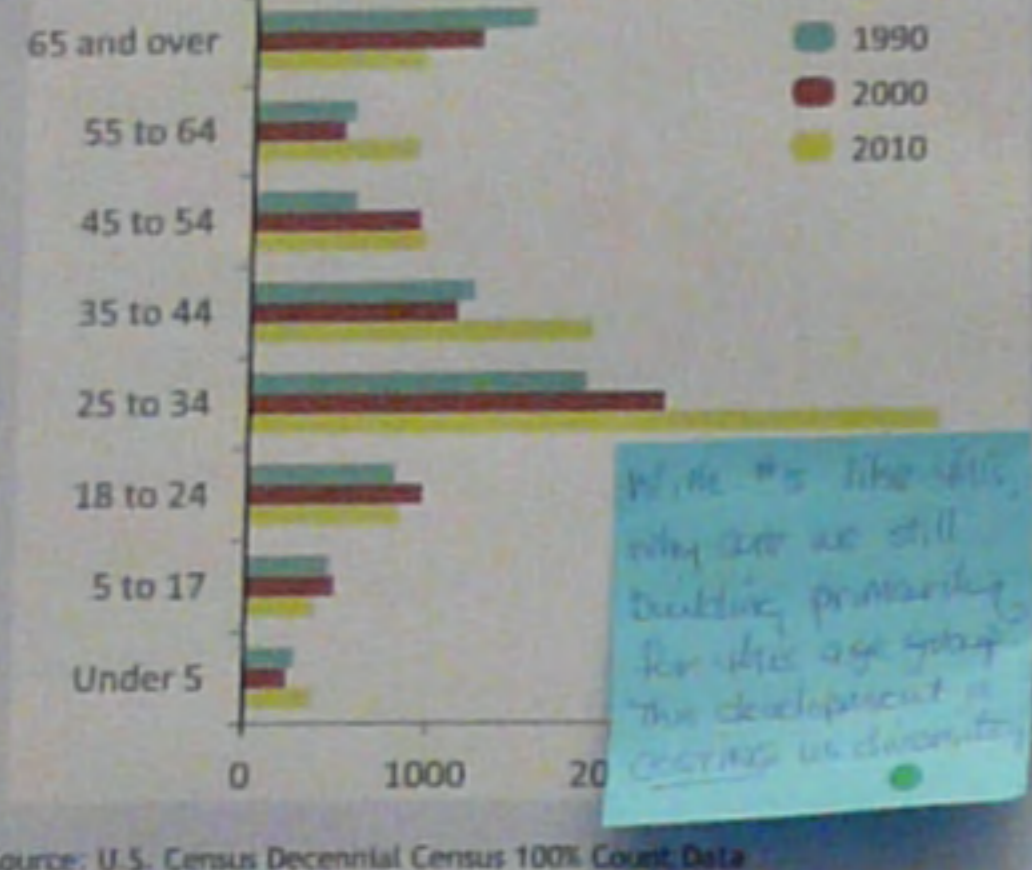 65 and over
55 to 64
45 to 54
35 to 44
25 to 34
18 to 24
5 to 17
Under 5
0 1000 20
1990
2000
2010
With #s like this,
why are we still
building primarily
for this age group
This development is
COSTING us diversity
ource: U.S. Census Decennial Census 100% Count Data